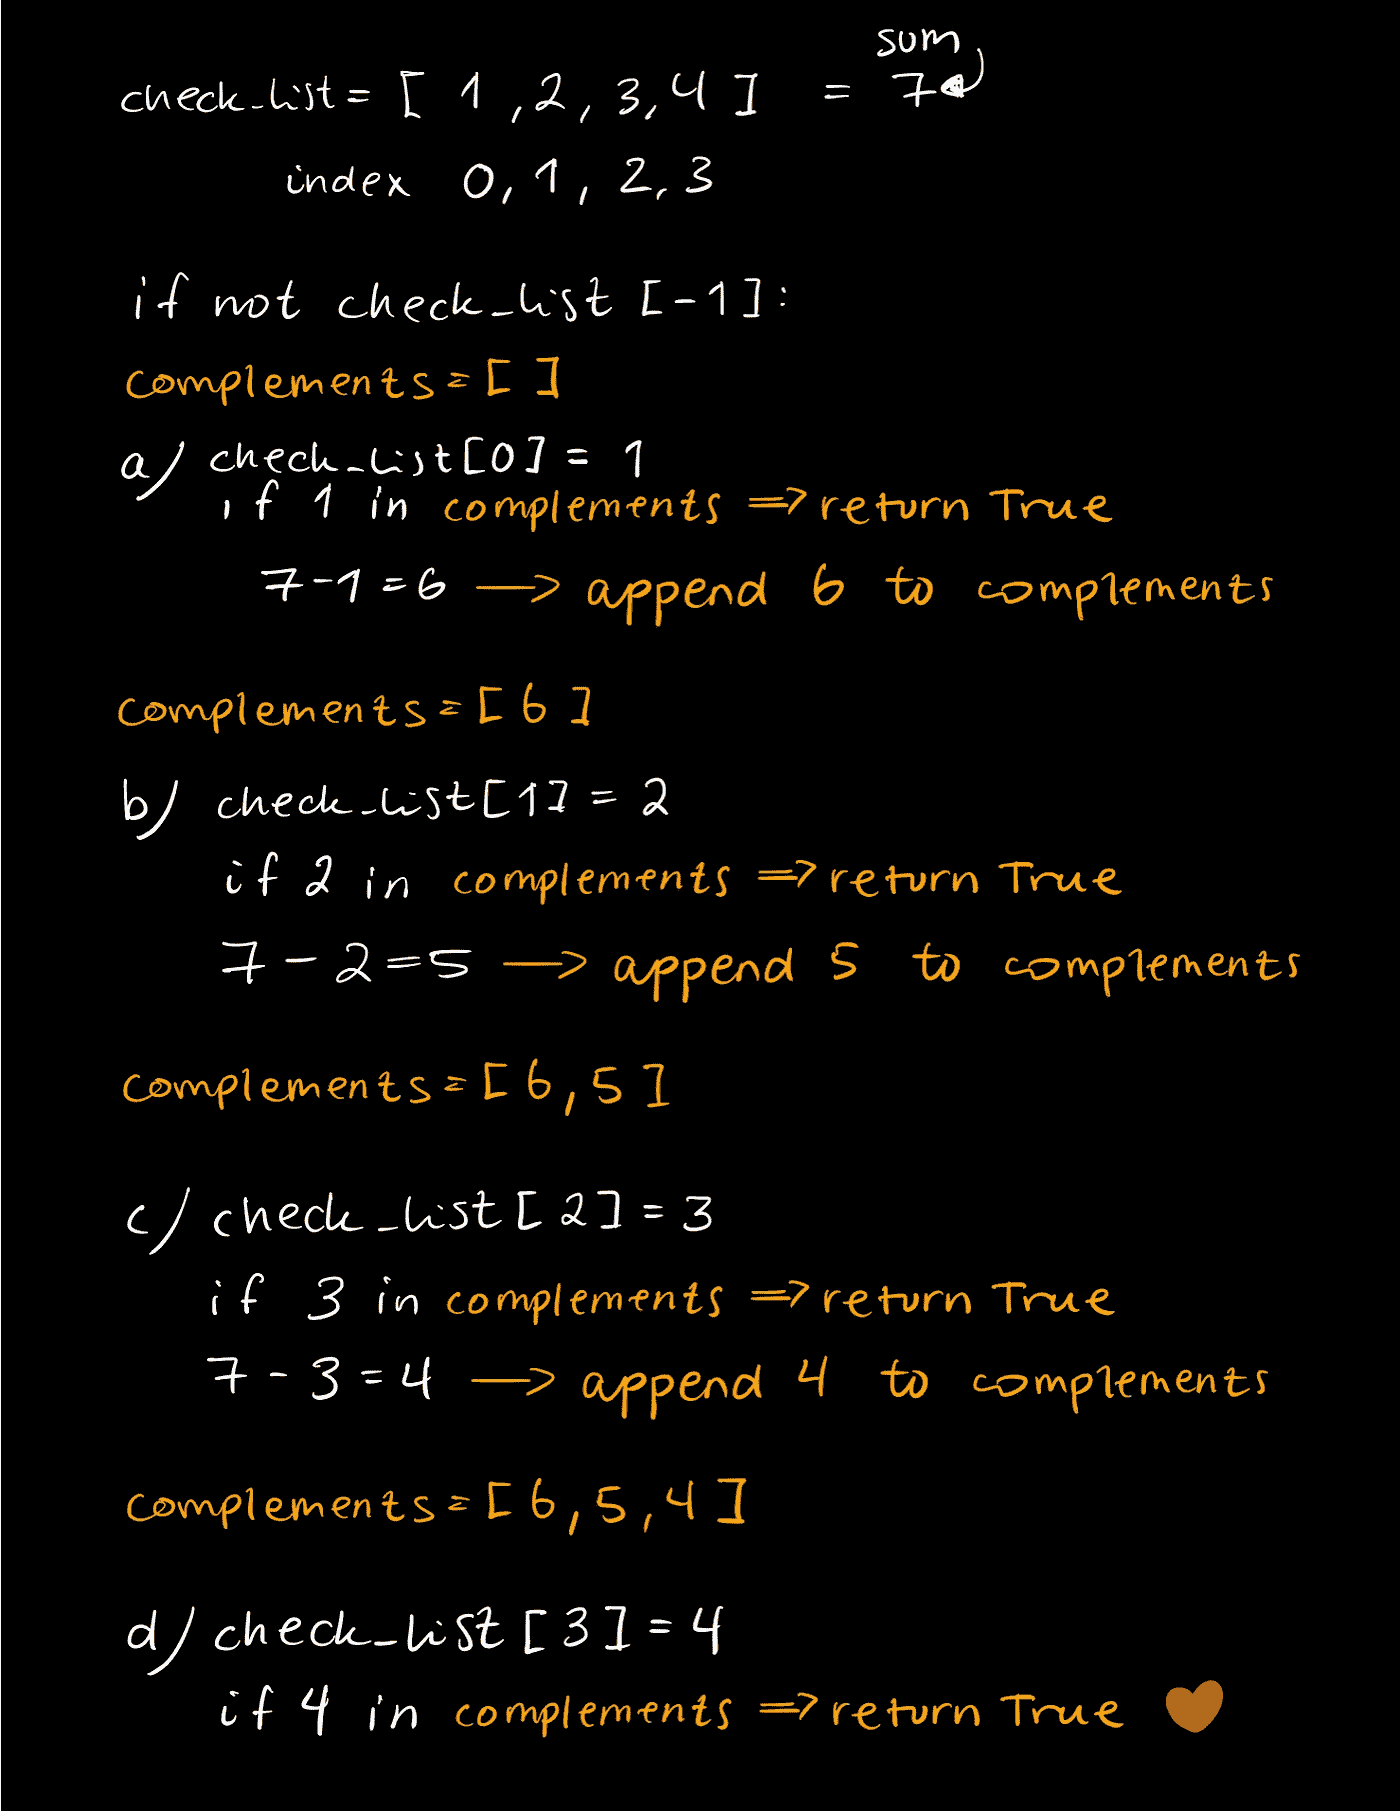 sum
check_list = [ 1, 2, 3, 4 ] = 7
index 0, 1, 2, 3
if not check_list [-1]:
complements = [ ]
a) check_list[0] = 1
if 1 in complements => return True
7-1=6 —> append 6 to complements
complements = [ 6 ]
b) check_list[1] = 2
if 2 in complements => return True
7-2=5 —> append 5 to complements
complements = [ 6, 5 ]
c) check_list[2] = 3
if 3 in complements => return True
7-3=4 —> append 4 to complements
complements = [ 6, 5, 4 ]
d) check_list[3] = 4
if 4 in complements => return True